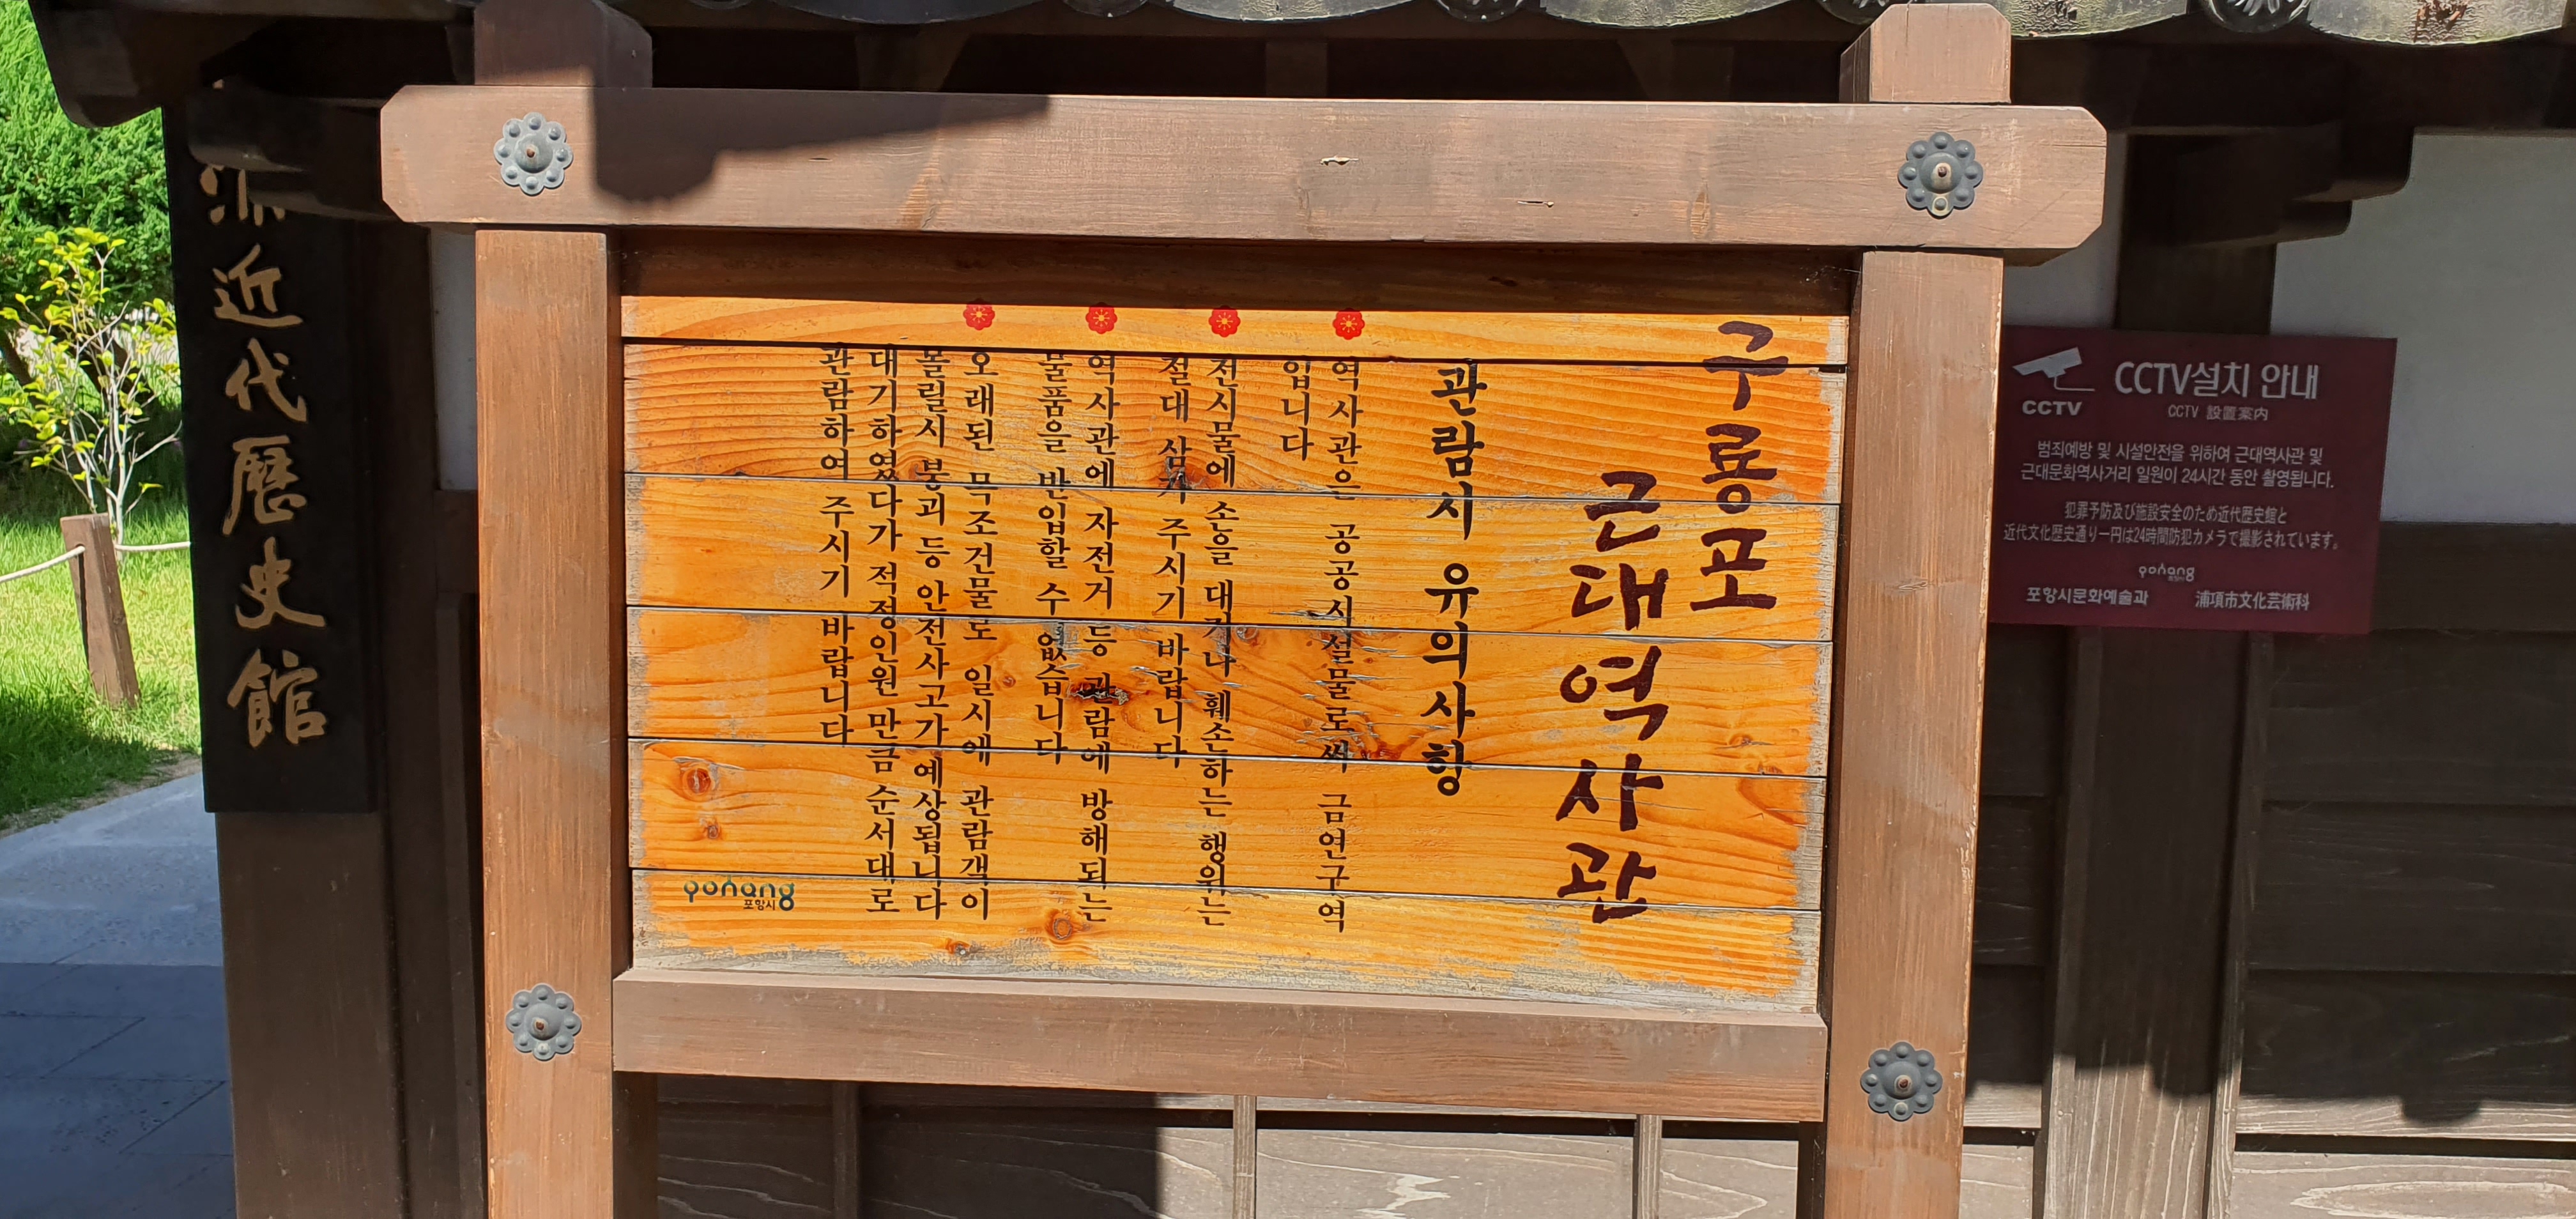 구룡포
근대역사관
관람시 유의사항
역사관은 공공시설물로써 금연구역
입니다
전시물에 손을 대거나 훼손하는 행위는
절대 삼가 주시기 바랍니다
역사관에 자전거 등 관람에 방해되는
물품을 반입할 수 없습니다
오래된 목조건물로 일시에 관람객이
몰릴시 붕괴 등 안전사고가 예상됩니다
대기하였다가 적정인원 만큼 순서대로
관람하여 주시기 바랍니다
pohang
포항시
近代歷史館
CCTV
CCTV설치 안내
CCTV 設置案内
범죄예방 및 시설안전을 위하여 근대역사관 및
근대문화역사거리 일원이 24시간 동안 촬영됩니다.
犯罪予防及び施設安全のため近代歴史館と
近代文化歴史通り一円は24時間防犯カメラで撮影されています。
pohang
포항시문화예술과 浦項市文化芸術科